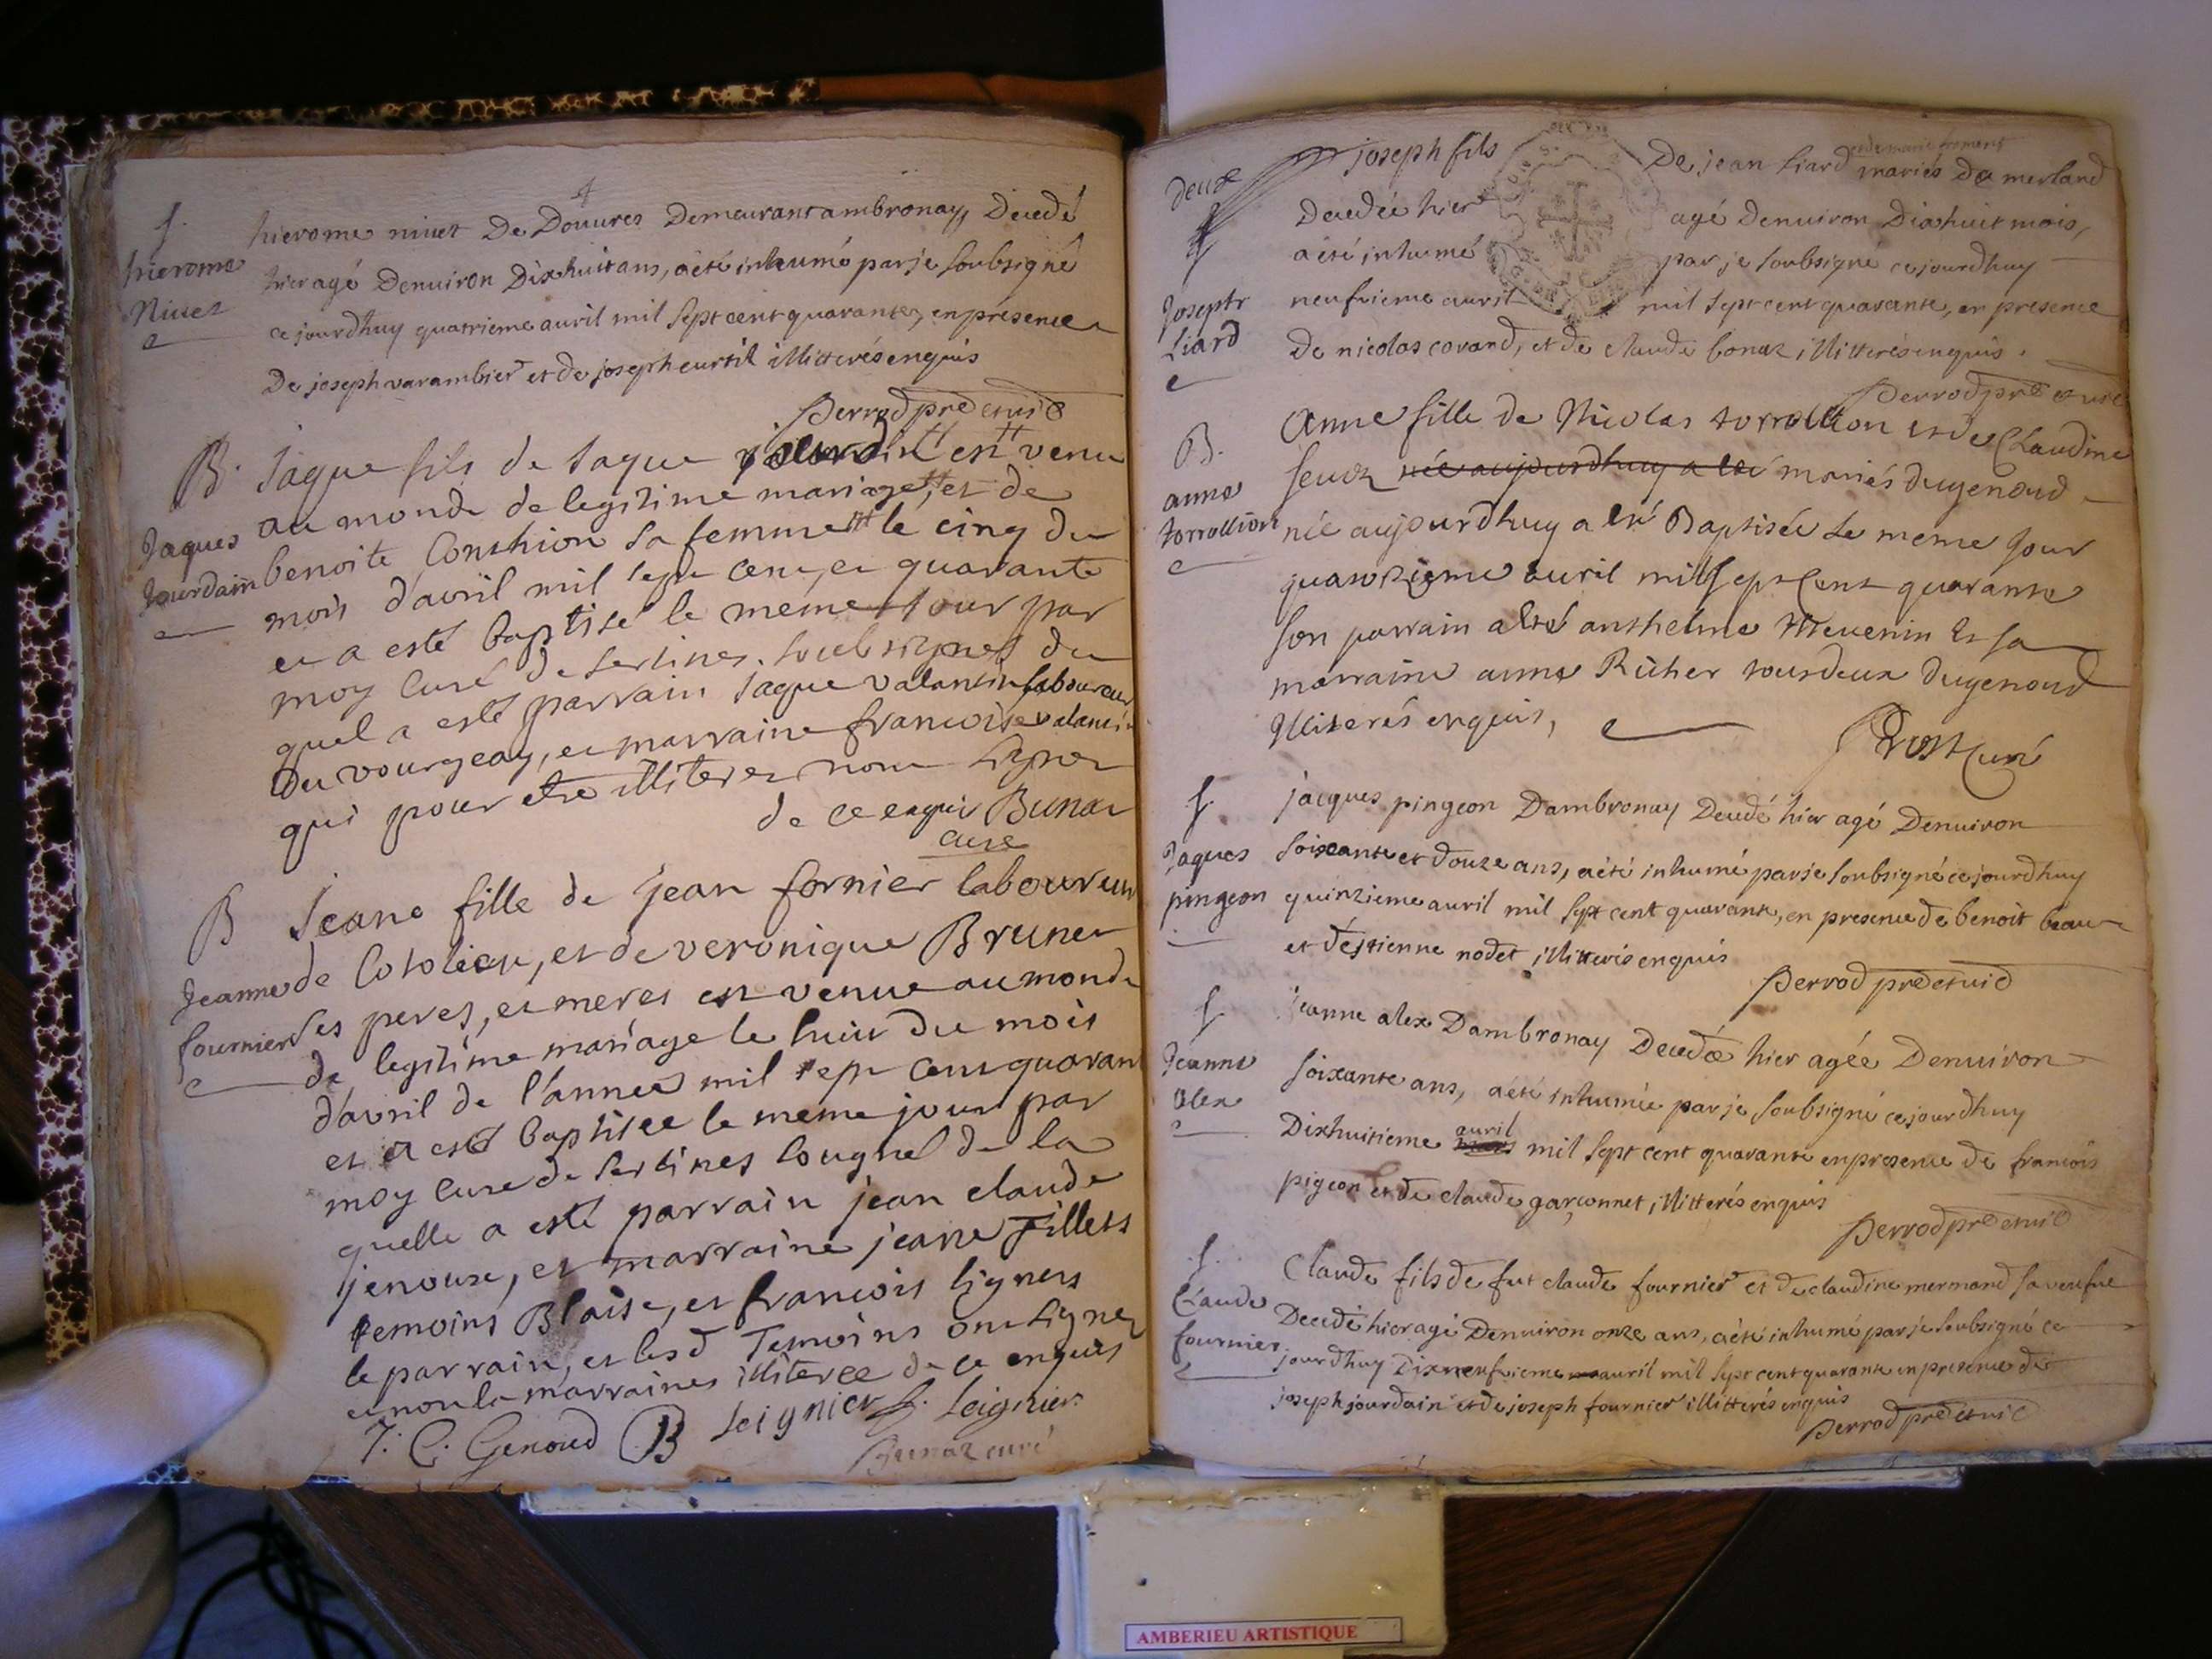 4
f.
hierome
Niuet
hierome niuet De Douures Demeurant ambronay, Decedé
hier agé Denuiron Dixhuit ans, a été inhumé par je soubsigné
ce jourdhuy quatrieme auril mil sept cent quarante, en présence
De joseph varambier et de joseph curtil illitterés enquis
perrod pre et vic
B.
Jaques
Jourdain
Jaque fils de Jaque jourdin est venu
au monde de legitime mariage, et de
benoite Conchion sa femme le cinq du
mois d'avril mil sept cent, et quarante
et a esté baptisé le même jour par
moy curé de serlines soubsignes du
quel a esté parrain Jaque valantin laboureur
du vourgeay, et marraine francoise valanti
qui pour etre illiteres nont signer
de ce enquis Bunar
cure
B
Jeanne
fournier
Jeane fille de jean fornier laboureur
de Cotolieu, et de veronique Brunet
ses peres, et meres est venue au monde
de legitime mariage le huit du mois
d'avril de l'annee mil sept cent quaran
et a esté baptisee le meme jour par
moy cure de serlines lougnel de la
quelle a esté parrain jean claude
jenoux, et marraine jeane Fillets
temoins Blaise, et francois signers
le parrain, et lesd Temoins ont signer
et non la marraines illiteree de ce enquis
J. C. Genoud B Seignier f. Seignier
Bunaz curé
deux
f
Joseph
Liard
joseph fils De jean liard et de marie froment mariés De merland
Decedée hier agé Denuiron Dixhuit mois,
a été inhumé par je soubsigné ce jourdhuy
neufuieme auril mil sept cent quarante, en présence
De nicolas covand, et de claude bonaz illitterés enquis.
perrod pre et vic
B.
anne
torrollion
Anne fille de Nicolas torrollion et de Claudine
seuoz née aujourdhuy a eté mariés dugenoud
née aujourdhuy a eté Baptisée le meme jour
quatorzieme auril mil sept cent quarante
son parrain a eté anthelme Meuenin et sa
marraine anne Richer tous deux dugenoud
Illiterés enquis,
Prost curé
f.
Jaques
pingeon
jacques pingeon Dambronay Decedé hier agé Denuiron
soixante et douze ans, a été inhumé par je soubsigné ce jourdhuy
quinzieme auril mil sept cent quarante, en presence de benoit beau
et d'estienne nodet illitterés enquis
perrod pre et vic
f.
Jeanne
alex
jeanne alex Dambronay Decedée hier agée Denuiron
soixante ans, a été inhumée par je soubsigné ce jourdhuy
Dixhuitieme mars auril mil sept cent quarante en presence de francois
pigeon et de claude garçonnet, illitterés enquis
perrod pre et vic
f.
Claude
fournier
Claude fils de fut claude fournier et de claudine mermand sa veufue
Decedé hier agé Denuiron onze ans, a été inhumé par je soubsigné ce
jourdhuy Dixneufuieme auril mil sept cent quarante en presence de
joseph jourdain et de joseph fournier illitterés enquis
perrod pre et vic
AMBERIEU ARTISTIQUE